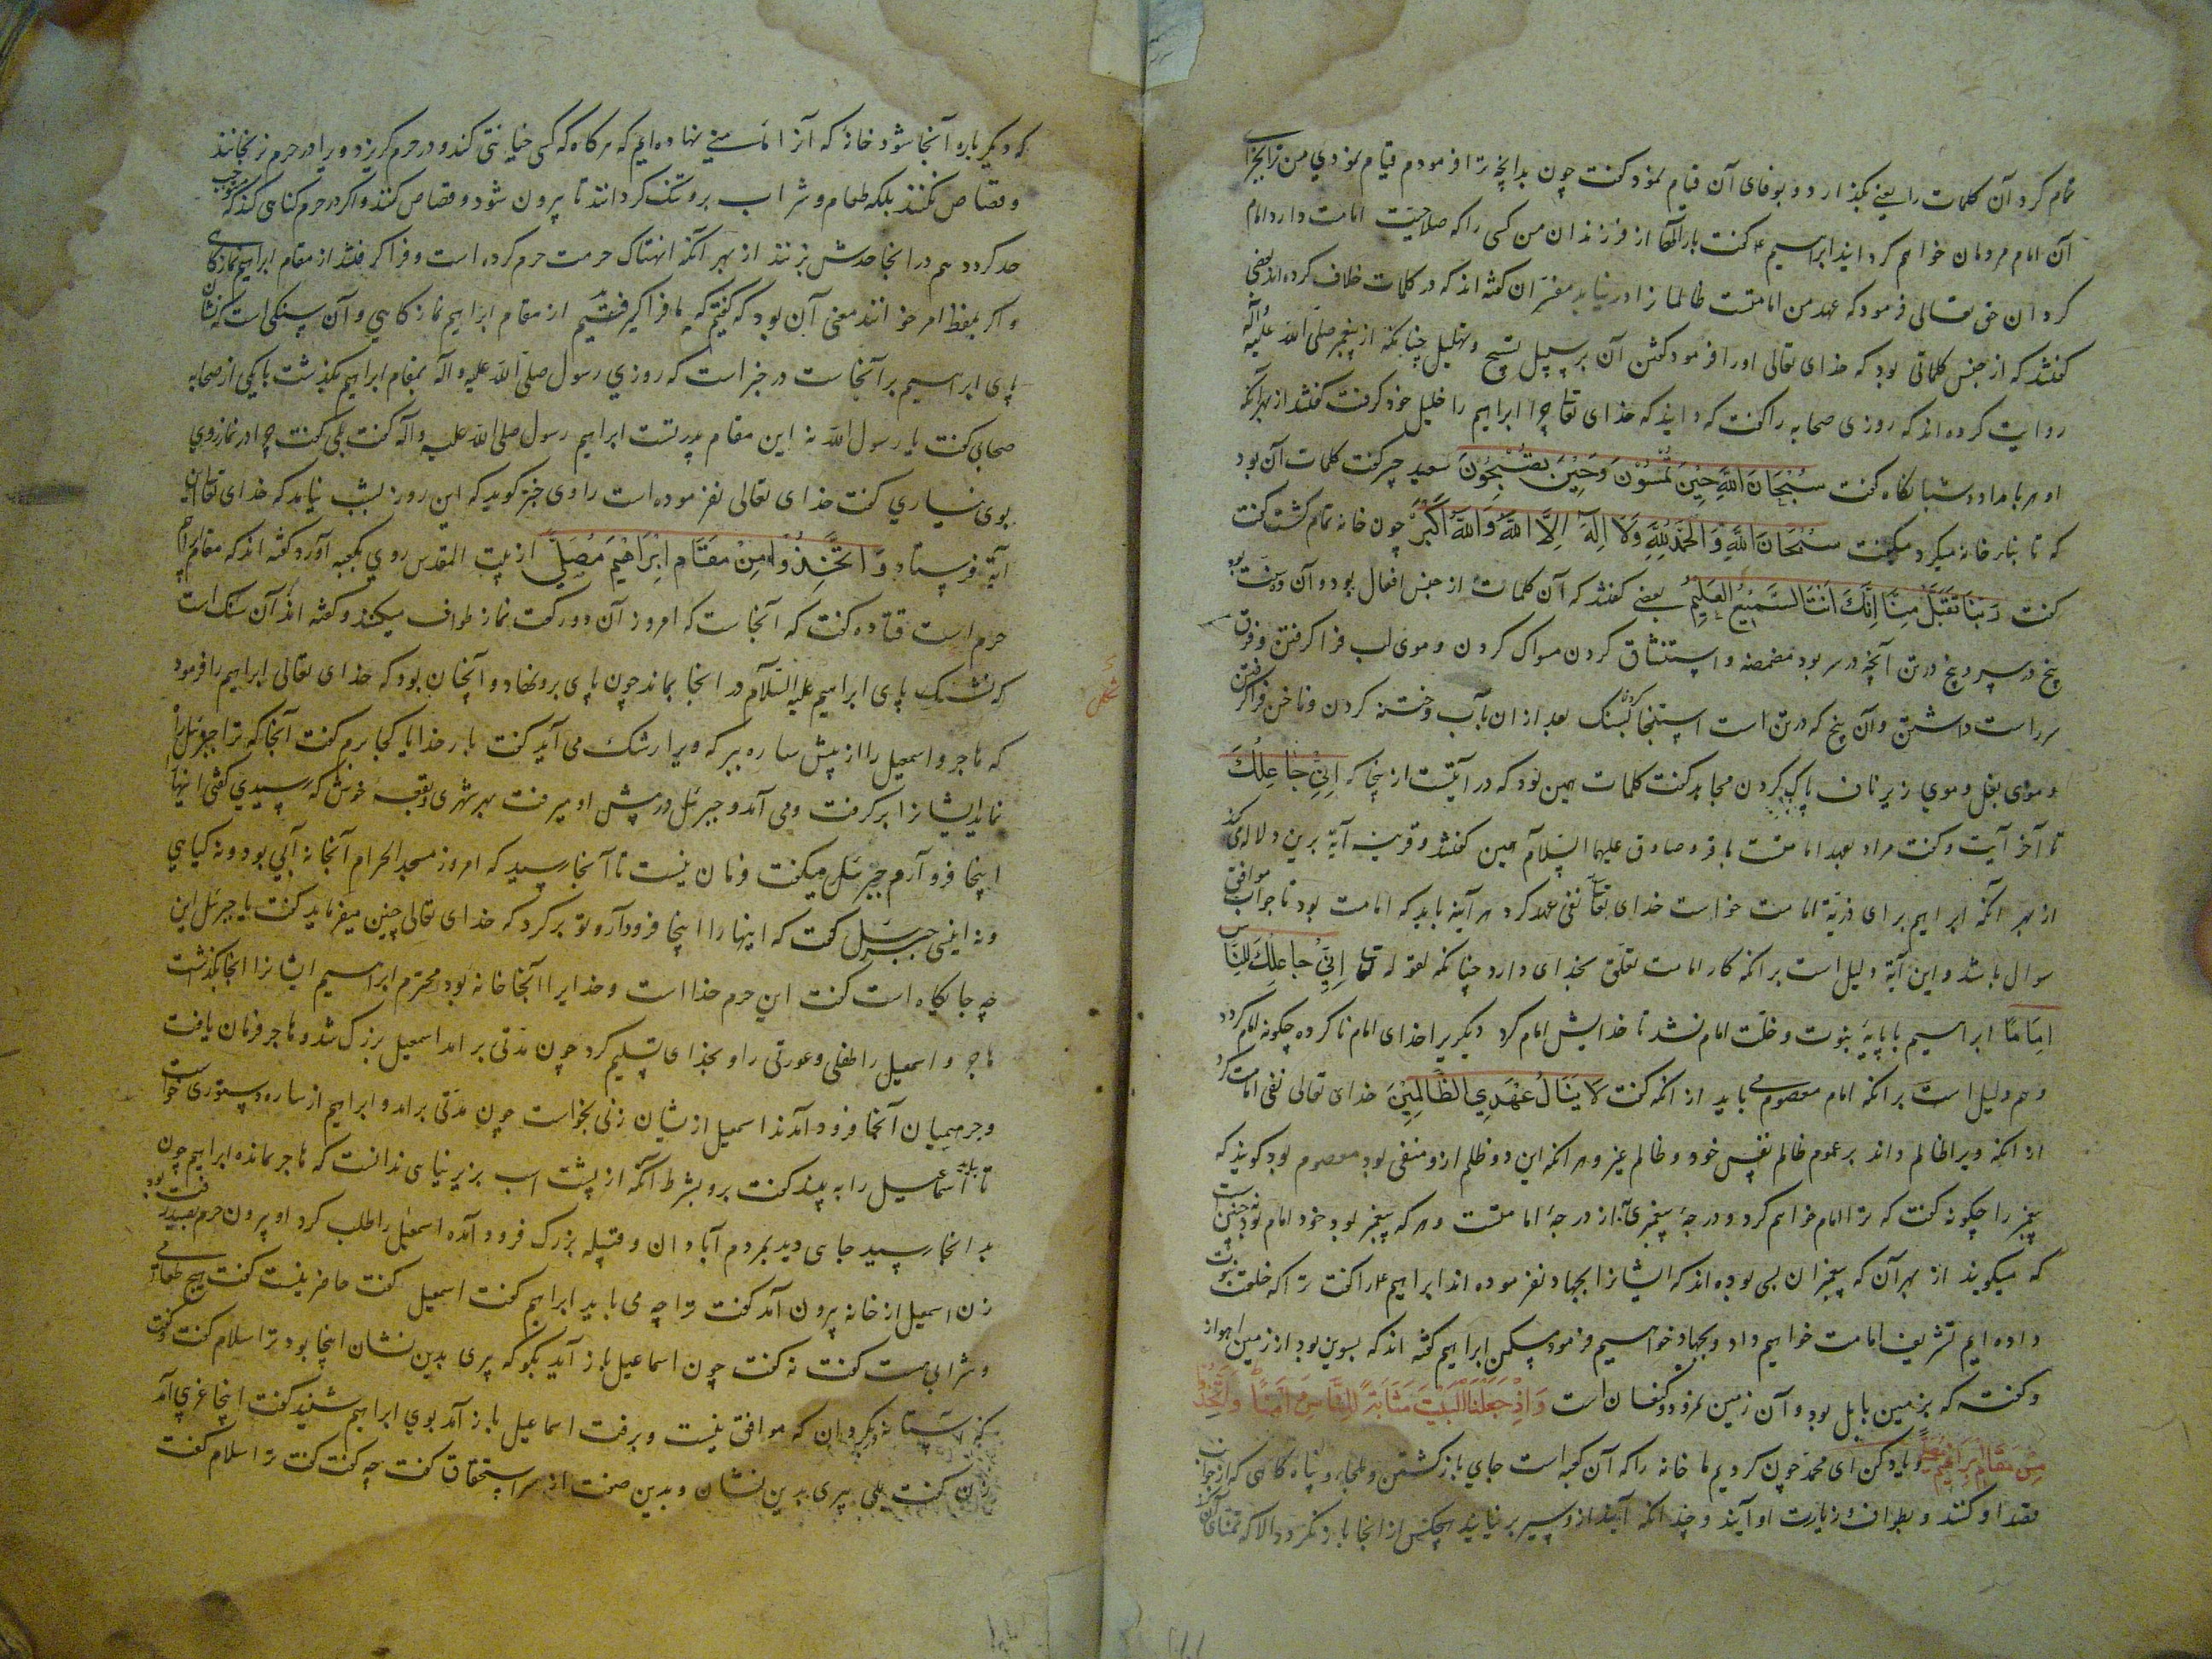 تمام کرد آن کلمات را یعنی بگذارد و بوفای آن قیام نمود گفت چون بدانچه ترا فرمودم قیام نمودی من ترا بجزای
آن امام مردمان خواهم کردانید ابراهیم ع گفت بارالها از فرزندان من کسی را که صلاحیت امامت دارد امام
کردان حق تعالی فرمود که عهد من امامتست ظالمانرا در نیابد مفسران گفته اند که در کلمات خلاف کرده اند بعضی
گفتند که از جنس کلماتی بود که خدای تعالی او را فرمود گفتن آن بر سبیل تسبیح و تهلیل چنانکه از پیغمبر صلی الله علیه و آله
روایت کرده اند که روزی صحابه را گفت که دانید که خدای تعا چرا ابراهیم را خلیل خود گرفت گفتند از بهر آنکه
او هر بامداد و شبانگاه گفت سُبْحَانَ اللَّهِ حِينَ تُمْسُونَ وَحِينَ تُصْبِحُونَ سعید جبیر گفت کلمات آن بود
که تا بنا خانه میکرد میگفت سُبْحَانَ اللَّهِ وَالْحَمْدُ لِلَّهِ وَلَا إِلَهَ إِلَّا اللَّهُ وَاللَّهُ أَكْبَرُ چون خانه تمام گشت گفت
گفت رَبَّنَا تَقَبَّلْ مِنَّا إِنَّكَ أَنْتَ السَّمِيعُ الْعَلِيمُ بعضی گفتند که آن کلمات از جنس افعال بود و آن ده سنت بود
پنج در سر و پنج در تن آنچه در سر بود مضمضه و استنشاق کردن مسواک کردن و موی لب فرا گرفتن و فرق
سر راست داشتن و آن پنج که در تن است استنجا کردن بسنگ بعد از آن بآب و ختنه کردن و ناخن فرا گرفتن
و موی بغل و موی زیر ناف پاک کردن مجاهد گفت کلمات همین بود که در آیتست از پنجا که إِنِّي جَاعِلُكَ
تا آخر آیت و گفت مراد بعهد امامتست باقر و صادق علیهما السلام همین گفتند و قرینه آیة برین دلالت کند
از بهر آنکه ابراهیم برای ذریّة امامت خواست خدای تعا نفی عهد کرد هر آینه باید که امامت بود تا جواب موافق
سوال باشد و این آیة دلیل است بر آنکه کار امامت تعلق بخدای دارد چنانکه لقوله تعا إِنِّي جَاعِلُكَ لِلنَّاسِ
إِمَامًا ابراهیم با پایهٔ نبوت و خلت امام نشد تا خدایش امام کرد دیگریرا خدای امام نا کرده چگونه امام گردد
و هم دلیل است بر آنکه امام معصوم می باید از آنکه گفت لَا يَنَالُ عَهْدِي الظَّالِمِينَ خدای تعالی نفی امامت کرد
از آنکه ویرا ظالم داند بر عموم ظالم نفس خود و ظالم غیر و هر آنکه این دو ظلم از و منفی بود معصوم بود گویند که
پیغمبر را چگونه گفت که ترا امام خواهم کرد و درجهٔ پیغمبری از درجهٔ امامتست و هر که پیغمبر بود خود امام بود نه چنین است
که میگویند از بهر آن که پیغمبران بسی بوده اند که ایشانرا بجهاد نفرموده اند ابراهیم ع را گفت ترا که خلعت نبوت
داده ایم تشریف امامت خواهیم داد و بجهاد خواهیم فرمود مسکن ابراهیم گفته اند که بسوین بود از زمین اهواز
و گفته که بزمین بابل بود و آن زمین نمرود کنعان است وَإِذْ جَعَلْنَا الْبَيْتَ مَثَابَةً لِلنَّاسِ وَأَمْنًا وَاتَّخِذُوا
مِنْ مَقَامِ إِبْرَاهِيمَ مُصَلًّى و یاد کن ای محمد چون کردیم ما خانه را که آن کعبه است جای باز گشتن و ملجا و پناه کاهی که از جوانب
قصد او کنند و بطواف و زیارت او آیند و چندانکه آیند از و سیر بر نیایند هیچکس از انجا باز نگردد الا که تمنای آن کند
که دیگر باره آنجا شود خانه که آنرا مامنی نهاده ایم که هر کاه که کسی خیانتی کند و در حرم گریزد ویرا در حرم نرنجانند
و قصاص نکنند بلکه طعام و شراب برو تنک گردانند تا برون شود و قصاص کنند و اگر در حرم گناهی کند که موجب
حد گردد هم در انجا حدش بزنند از بهر آنکه انتهاک حرمت حرم کرده است و فرا گرفتند از مقام ابراهیم نمازگاهی
و اگر بلفظ امر خوانند معنی آن بود که گفتیم که ما فرا گیر فتیم از مقام ابراهیم نماز کاهی و آن سنگی است که نشان
پای ابراهیم بر آنجاست در خبر است که روزی رسول صلی الله علیه و آله بمقام ابراهیم بگذشت با یکی از صحابه
صحابی گفت یا رسول الله نه این مقام پدرتست ابراهیم رسول صلی الله علیه و آله گفت بلی گفت چرا در نماز روی
بوی نیاری گفت خدای تعالی نفرموده است راوی خبر گوید که این روز بشب نیامد که خدای تعا این
آیة فرستاد وَاتَّخِذُوا مِنْ مَقَامِ إِبْرَاهِيمَ مُصَلًّى از بیت المقدس روی بکعبه آورد گفته اند که مقام ابراهیم
حرم است قتاده گفت که آنجاست که امروز آن دو رکعت نماز طواف میکنند و گفته اند آن سنگ است
که نشان پای ابراهیم علیه السلام در انجا بماند چون پای برو نهاد و آنچنان بود که خدای تعالی ابراهیم را فرمود
که هاجر و اسمعیل را از پیش ساره ببر که ویرا رشک می آید گفت بار خدایا کجا برم گفت آنجا که ترا جبرئیل
نماید ایشانرا بر گرفت و می آمد و جبرئیل در پیش او میرفت بهر شهری و بقعهٔ خوش که رسیدی گفتی اینها
اینجا فرو آرم جبرئیل میگفت فرمان نیست تا آنجا رسید که امروز مسجد الحرام آنجا نه آبی بود و نه گیاهی
و نه انیسی جبرئیل گفت که اینها را اینجا فرود آر و تو بر گرد که خدای تعالی چنین میفرماید گفت یا جبرئیل این
چه جایگاه است گفت این حرم خدا است و خدایرا اینجا خانه بود محترم ابراهیم ایشانرا انجا بگذاشت
هاجر و اسمعیل را طفلی و عورتی را و بخدای تسلیم کرد چون مدتی بر آمد اسمعیل بزرگ شد و هاجر فرمان یافت
و جرهمیان آنجا فرود آمدند اسمعیل از یشان زنی بخواست چون مدتی بر آمد و ابراهیم از ساره دستوری خواست
تا اسماعیل را به بیند گفت برو بشرط آنکه از پشت اسب بزیر نیایی ندانست که هاجر نمانده ابراهیم چون
بدانجا رسید جایی دید بمردم آبادان و قبیله بزرگ فرود آمده اسمعیل را طلب کرد او برون حرم بصید رفته بود
زن اسمعیل از خانه برون آمد گفت ترا چه می باید ابراهیم گفت اسمعیل گفت حاضر نیست گفت هیچ طعامی
و شرابی هست گفت نه گفت چون اسماعیل باز آید بگو که پیری بدین نشان اینجا بود ترا سلام گفت و گفت
که آستانه دیگر گردان که موافق نیست و برفت اسماعیل باز آمد بوی ابراهیم شنید گفت اینجا غریبی آمد
زن گفت بلی پیری بدین نشان و بدین صفت از سر استخفاف گفت چه گفت گفت ترا سلام گفت